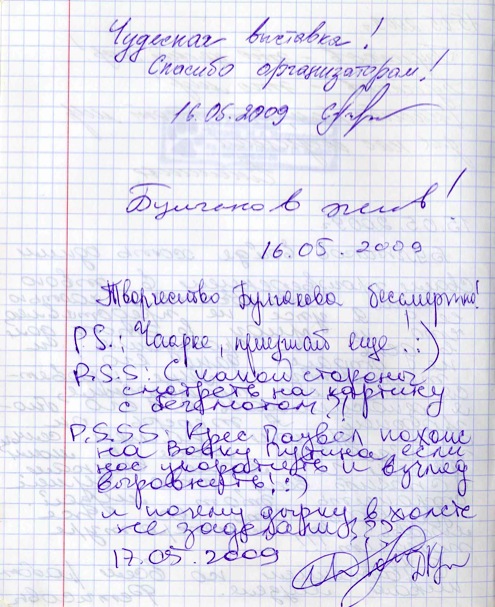 Чудесная выставка!
Спасибо организаторам!
16.05.2009
Булгаков жив!
16.05.2009
Творчество Булгакова бессмертно!
P.S.: Чаарке, приезжай еще! :)
P.S.S: С какой стороны
смотреть на картину
с бегемотом?!
P.S.S.S: Крес Паувел похож
на Вовку Путина, если
нос укоротить и взгляд
выровнять! :)
и почему дырку в холсте
не заделали???
17.05.2009